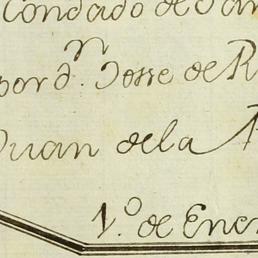 Condado de San
por dn. Josse de R
Juan de la P
1.º de Ener